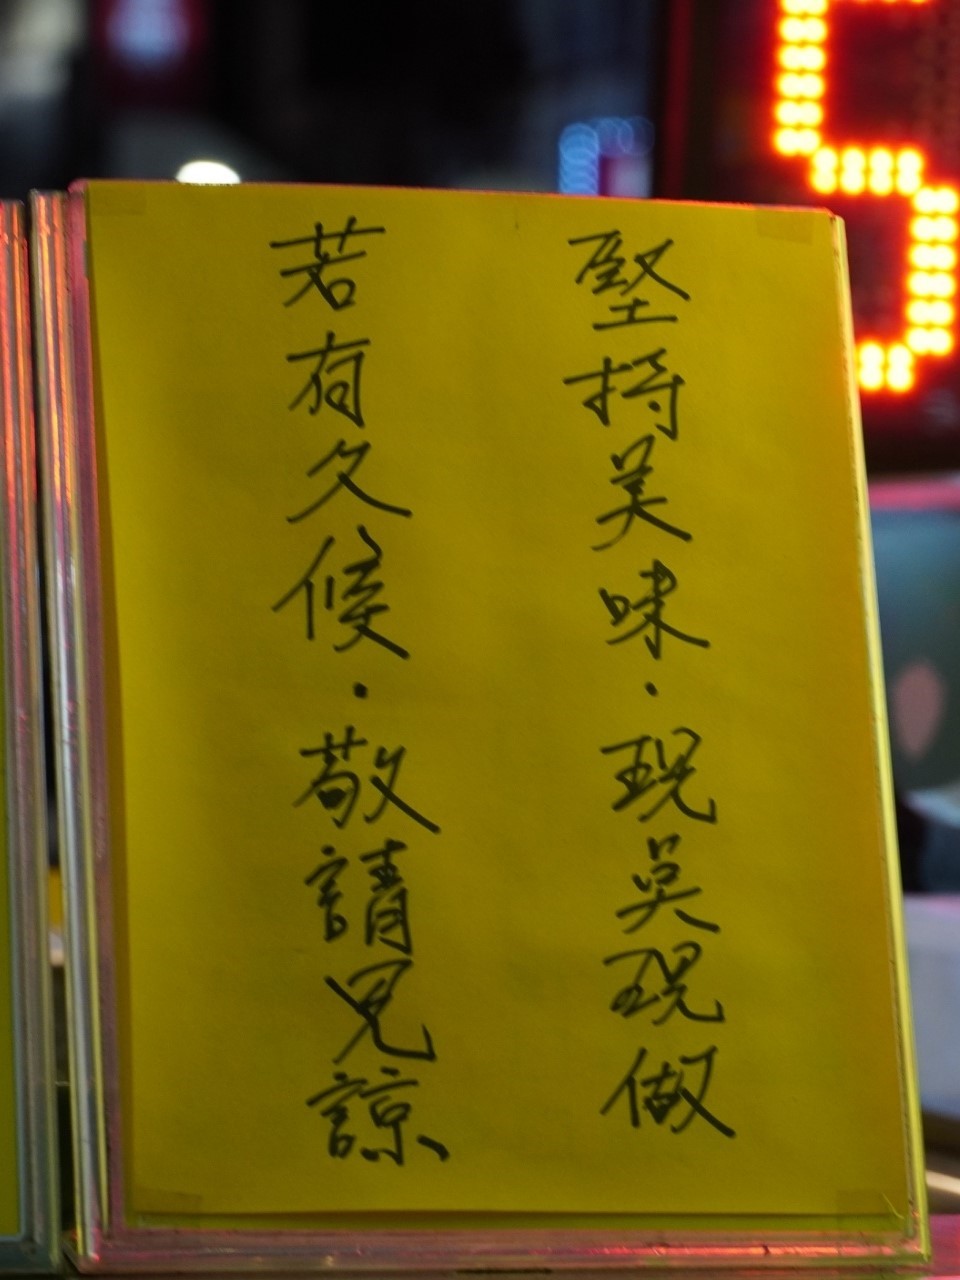 堅持美味·現奌現做
若有久候·敬請見諒